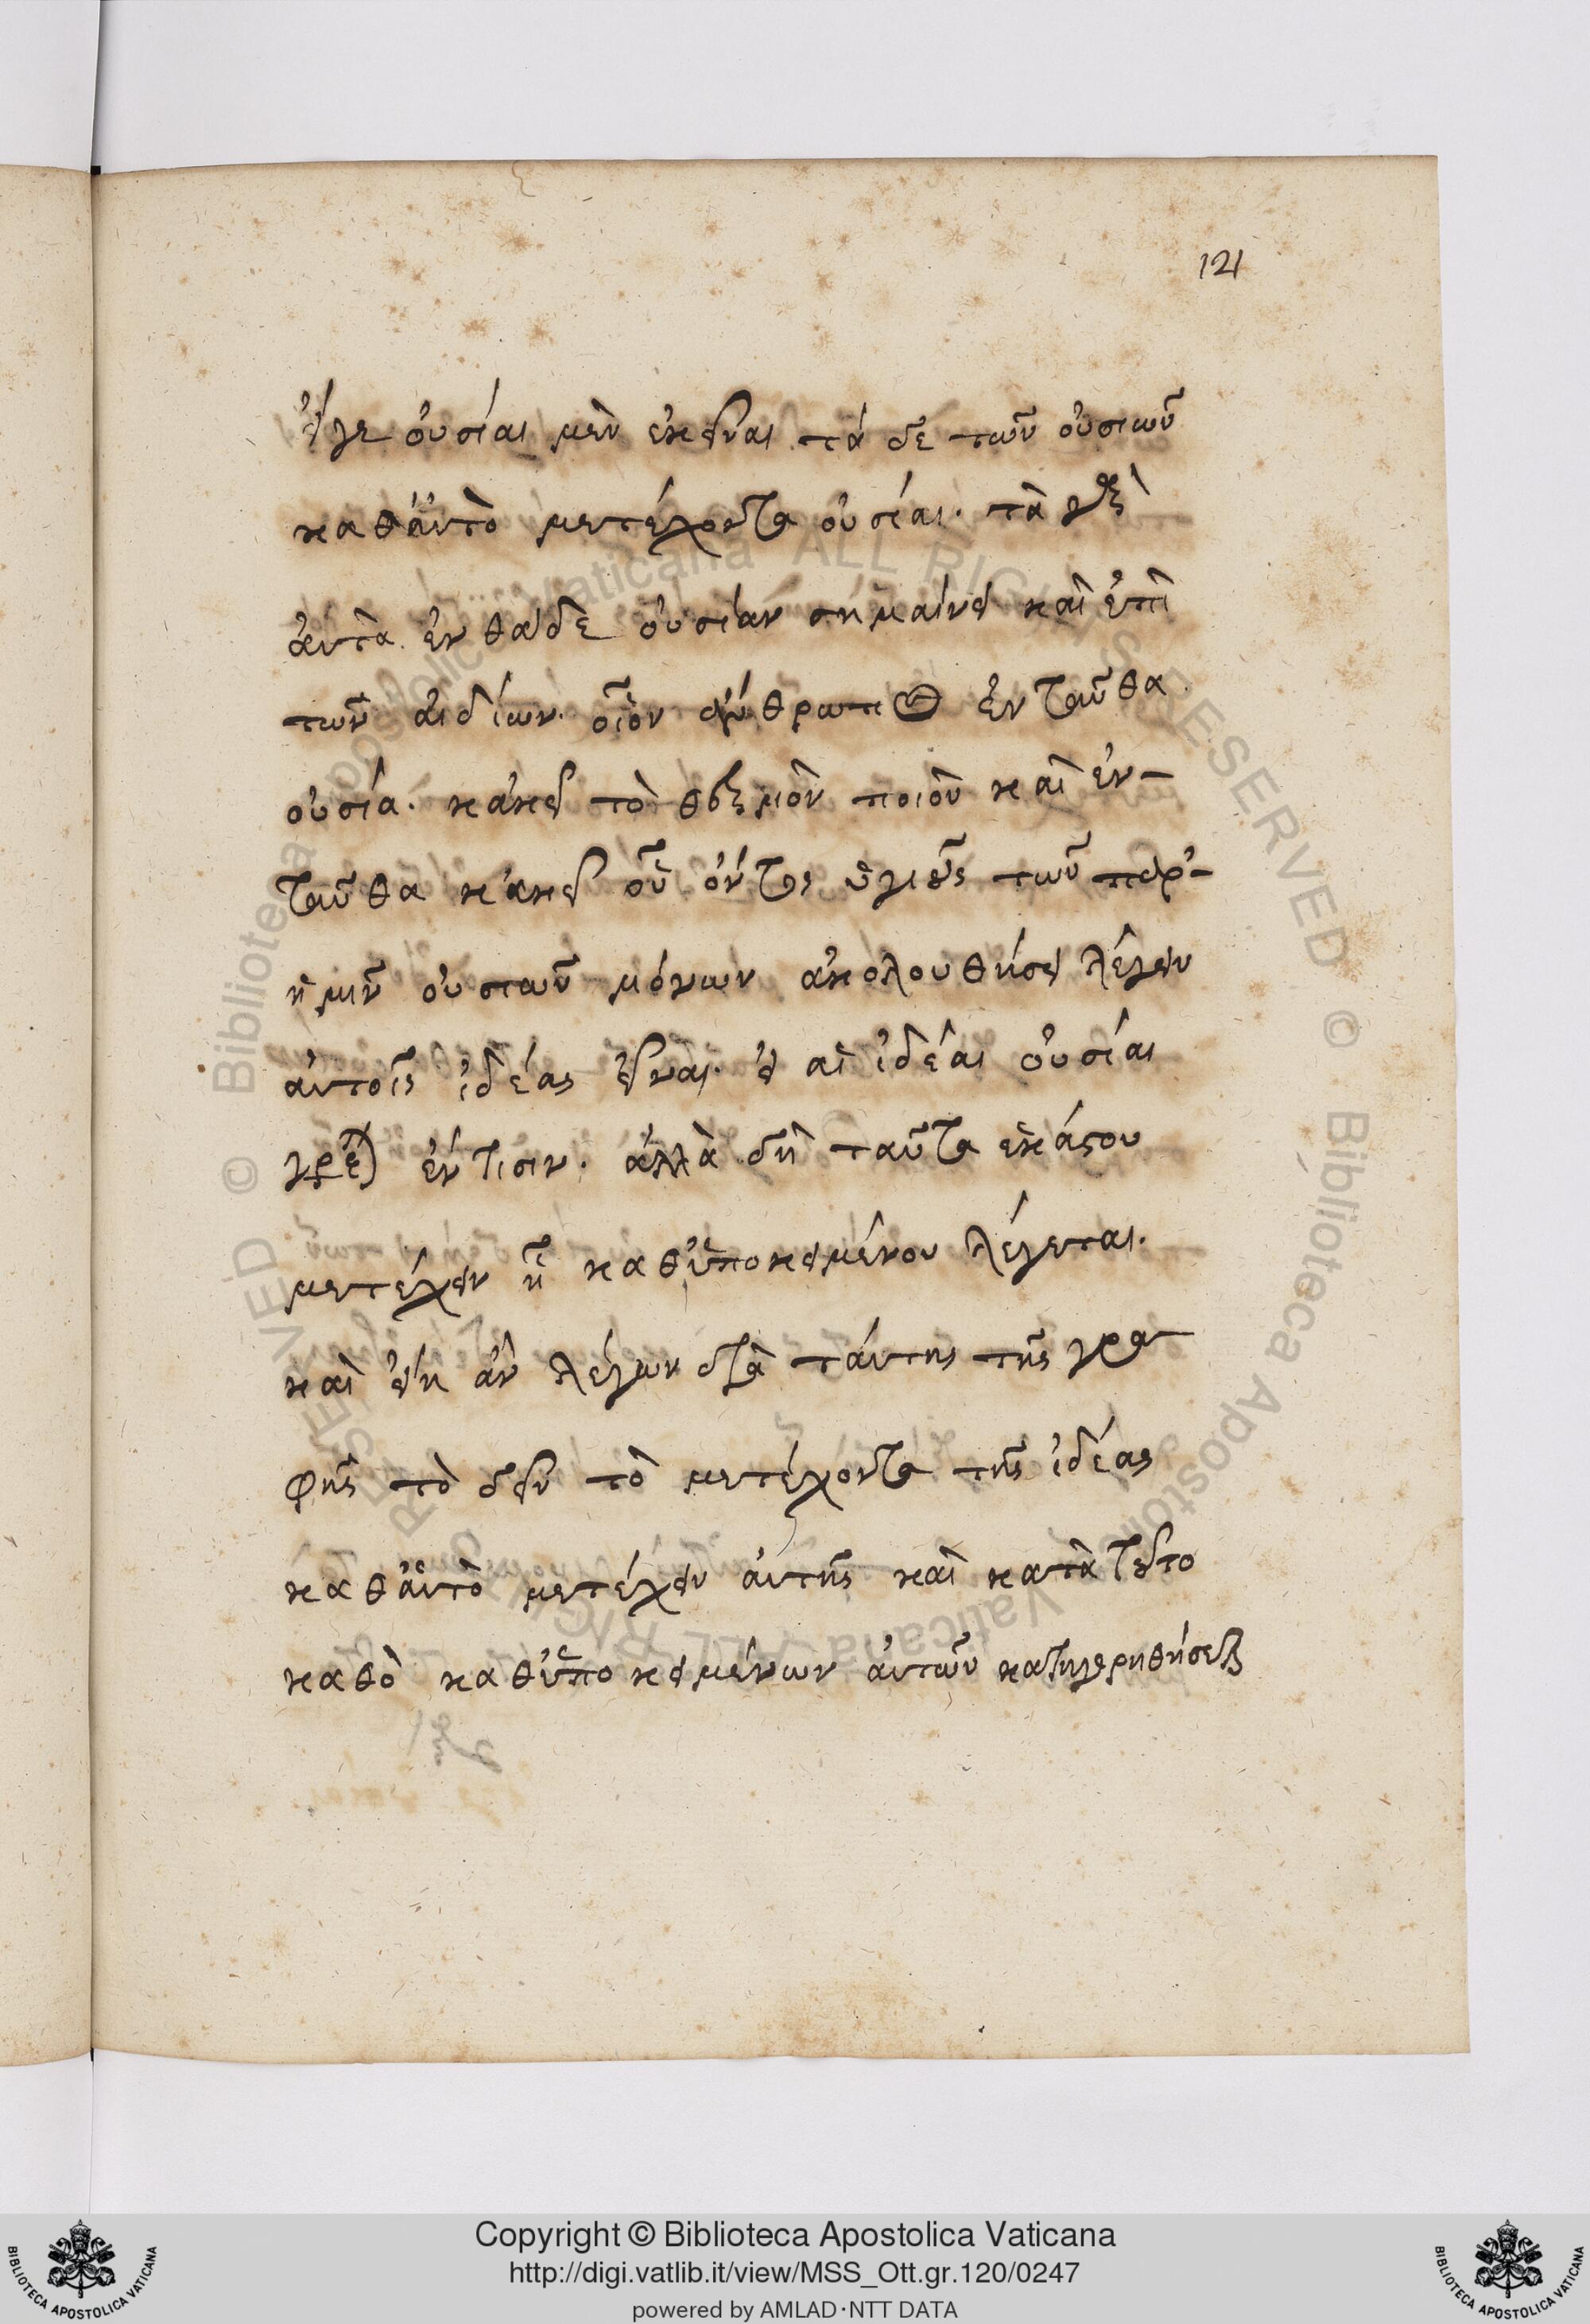 121
εἴγε οὐσίαι μὲν ἐκεῖναι τὰ δὲ τῶν οὐσιῶν
καθ' αὑτὸ μετέχοντα οὐσίαι. τὰ γὰρ
αὐτὰ ἐνθάδε οὐσίαν σημαίνει καὶ ἐπὶ
τῶν ἀϊδίων. οἷον ἄνθρωπος ἐνταῦθα
οὐσία. κἀκεῖ τὸ θερμὸν ποιὸν καὶ ἐν-
ταῦθα κἀκεῖ οὗ ὄντος ὑγιοῦς τῶν παρ'
ἡμῖν οὐσιῶν μόνων ἀκολουθήσει λέγειν
αὐτοῖς ἰδέας εἶναι. εἰ αἱ ἰδέαι οὐσίαι
ἐντισιν. ἀλλὰ δὴ ταῦτα ἑκάστου
μετέχειν ἢ καθ' ὑποκειμένου λέγεται.
καὶ εἴη ἂν λέγων διὰ ταύτης τῆς γρα
φῆς τὸ δεῖν τὸ μετέχοντα τῆς ἰδέας
καθ' αὑτὸ μετέχειν αὐτῆς καὶ κατὰ τοῦτο
καθὸ καθ' ὑποκειμένων αὐτῶν κατηγορηθήσεται
Copyright © Biblioteca Apostolica Vaticana
http://digi.vatlib.it/view/MSS_Ott.gr.120/0247
powered by AMLAD·NTT DATA
BIBLIOTECA APOSTOLICA VATICANA
BIBLIOTECA APOSTOLICA VATICANA
© Biblioteca Apostolica Vaticana ALL RIGHTS RESERVED
© Biblioteca Apostolica Vaticana ALL RIGHTS RESERVED